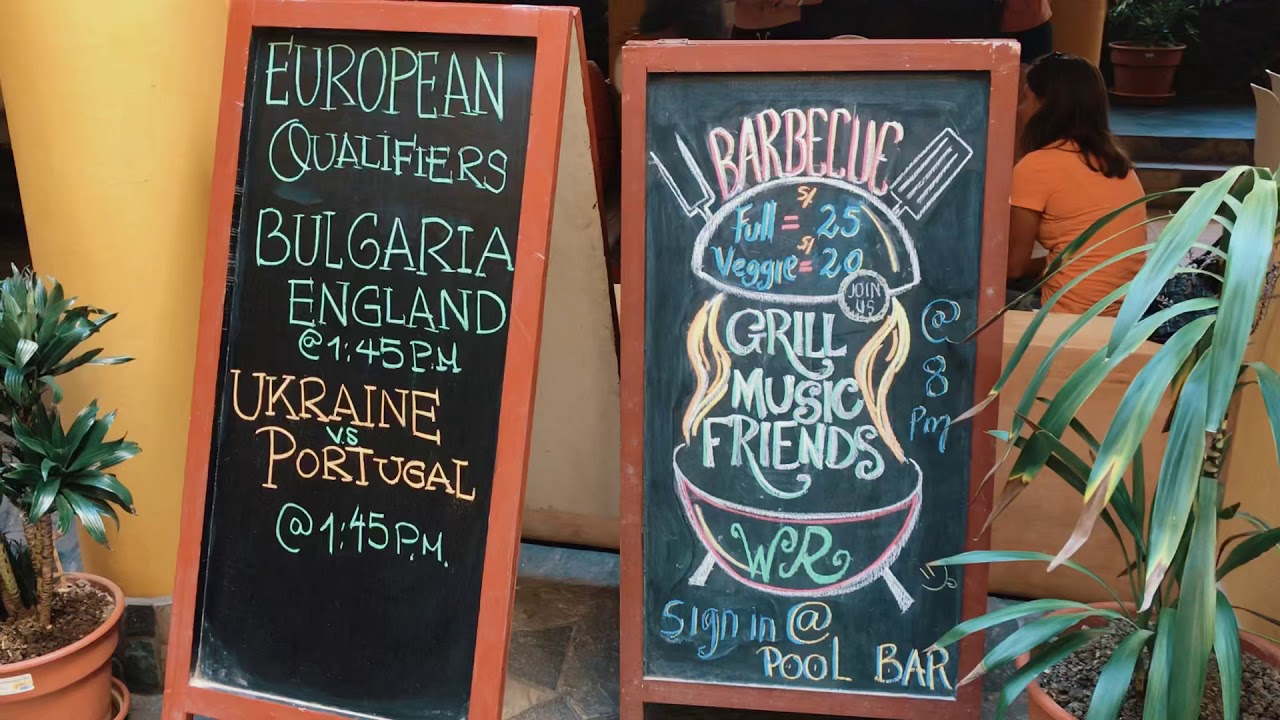 EUROPEAN
QUALIFIERS
BULGARIA
ENGLAND
@ 1:45 P.M
UKRAINE
V.S
PORTUGAL
@ 1:45 P.M.
BARBECUE
Full = S/ 25
Veggie = S/ 20
JOIN
US
GRILL
MUSIC
FRIENDS
@
8
Pm
WR
Sign in @
POOL BAR